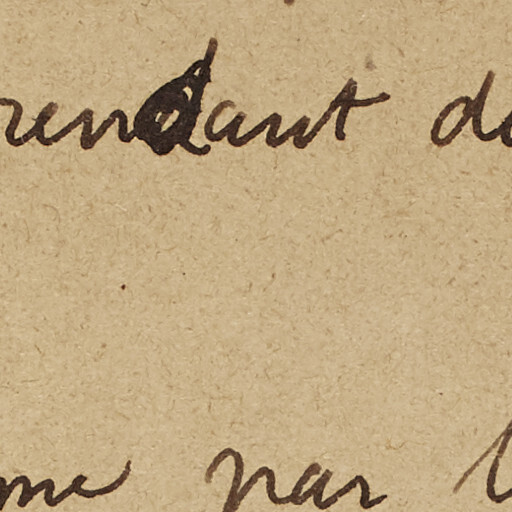 rendant d
me par l